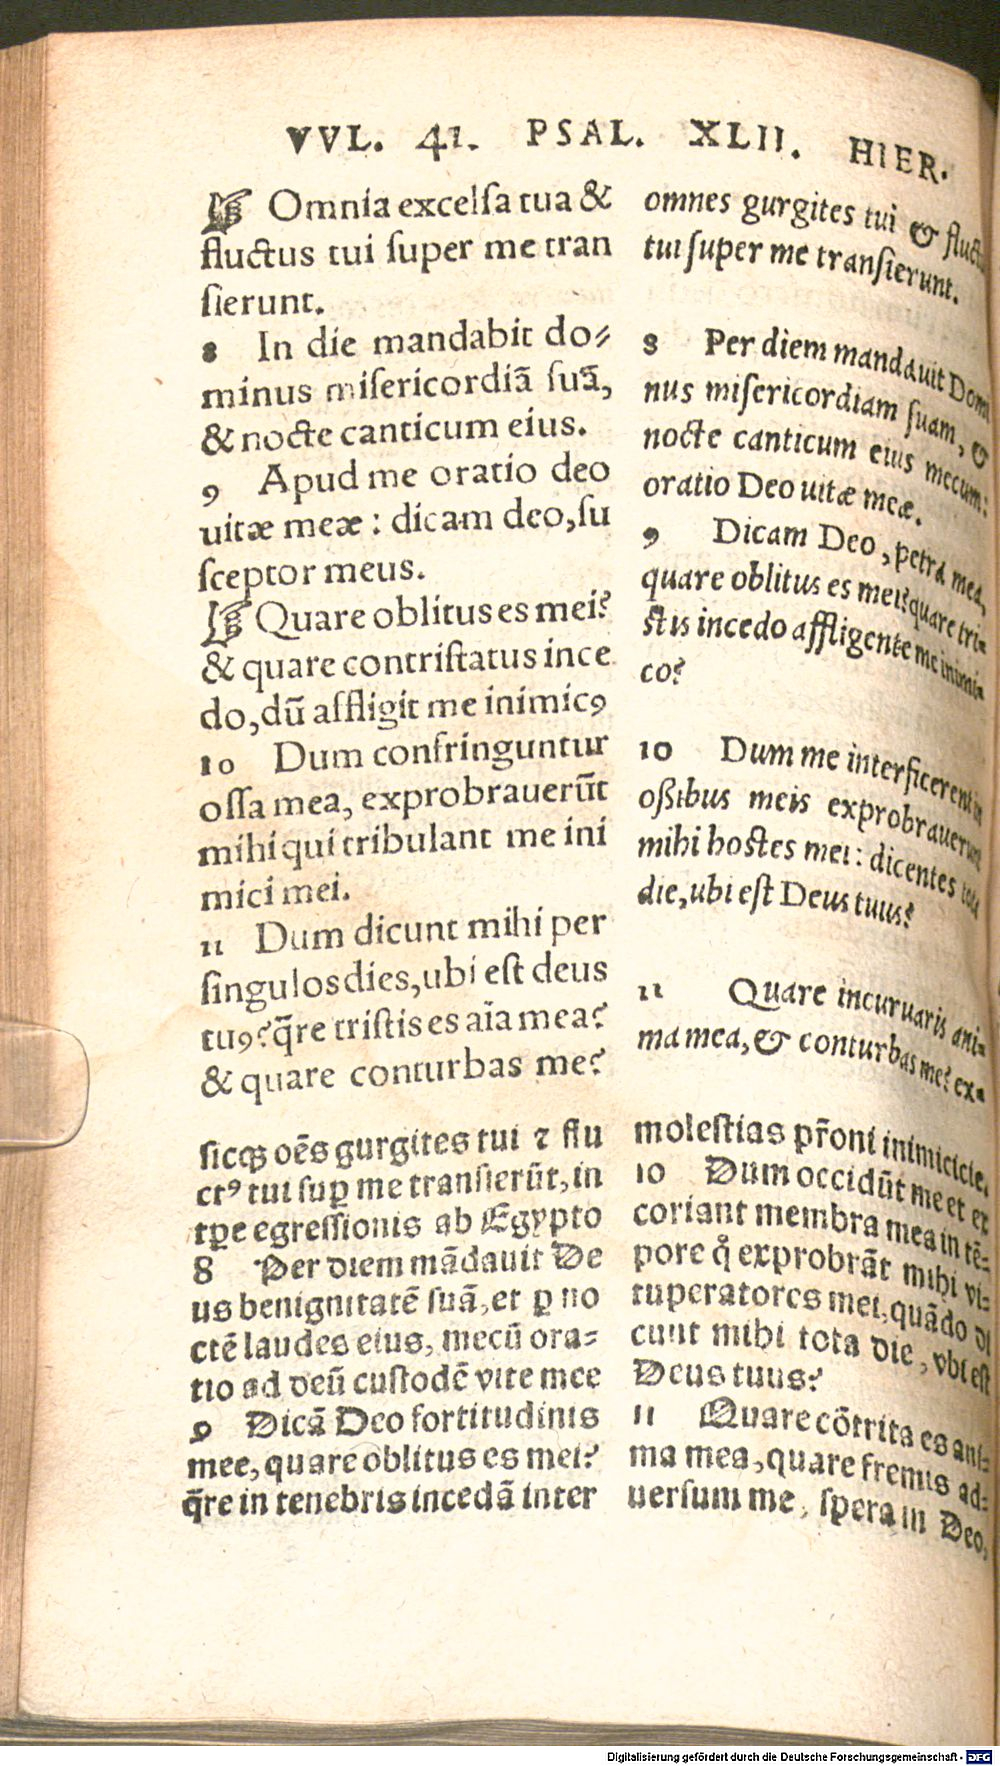 VVL. 41. PSAL. XLII. HIER.
☞ Omnia excelſa tua &
fluctus tui ſuper me tran
ſierunt.
8 In die mandabit do⸗
minus miſericordiā ſuā,
& nocte canticum eius.
9 Apud me oratio deo
uitæ meæ : dicam deo, ſu
ſceptor meus.
☞ Quare oblitus es mei?
& quare contriſtatus ince
do, dū affligit me inimicꝰ
10 Dum confringuntur
oſſa mea, exprobrauerūt
mihi qui tribulant me ini
mici mei.
11 Dum dicunt mihi per
ſingulos dies, ubi eſt deus
tuꝰ? q̄re triſtis es aīa mea?
& quare conturbas me?
omnes gurgites tui & fluctus
tui ſuper me tranſierunt.
8 Per diem mandauit Domi
nus miſericordiam ſuam, &
nocte canticum eius mecum:
oratio Deo uitæ meæ.
9 Dicam Deo, petra mea,
quare oblitus es mei? quare tri-
ſtis incedo affligente me inimi-
co?
10 Dum me interficerent in
oſsibus meis exprobrauerunt
mihi hoſtes mei: dicentes tota
die, ubi eſt Deus tuus?
11 Quare incuruaris ani-
ma mea, & conturbas me? ex-
ſicqꝫ oēs gurgites tui ⁊ flu
ctꝰ tui ſuꝑ me tranſierūt, in
tꝑe egreſſionis ab Egypto
8 Per diem mādauit De
us benignitatē ſuā, et ꝑ no
ctē laudes eius, mecū ora⸗
tio ad deū cuſtodē vite mee
9 Dicā Deo fortitudinis
mee, quare oblitus es mei?
q̄re in tenebris incedā inter
moleſtias pr̄oni inimicicie.
10 Dum occidūt me et ex
coriant membra mea in tē⸗
pore qͦ exprobrāt mihi vi⸗
tuperatores mei, quādo di
cunt mihi tota die, vbi eſt
Deus tuus?
11 Quare cōtrita es ani⸗
ma mea, quare fremis ad⸗
uerſum me, ſpera in Deo,
Digitalisierung gefördert durch die Deutsche Forschungsgemeinschaft - DFG